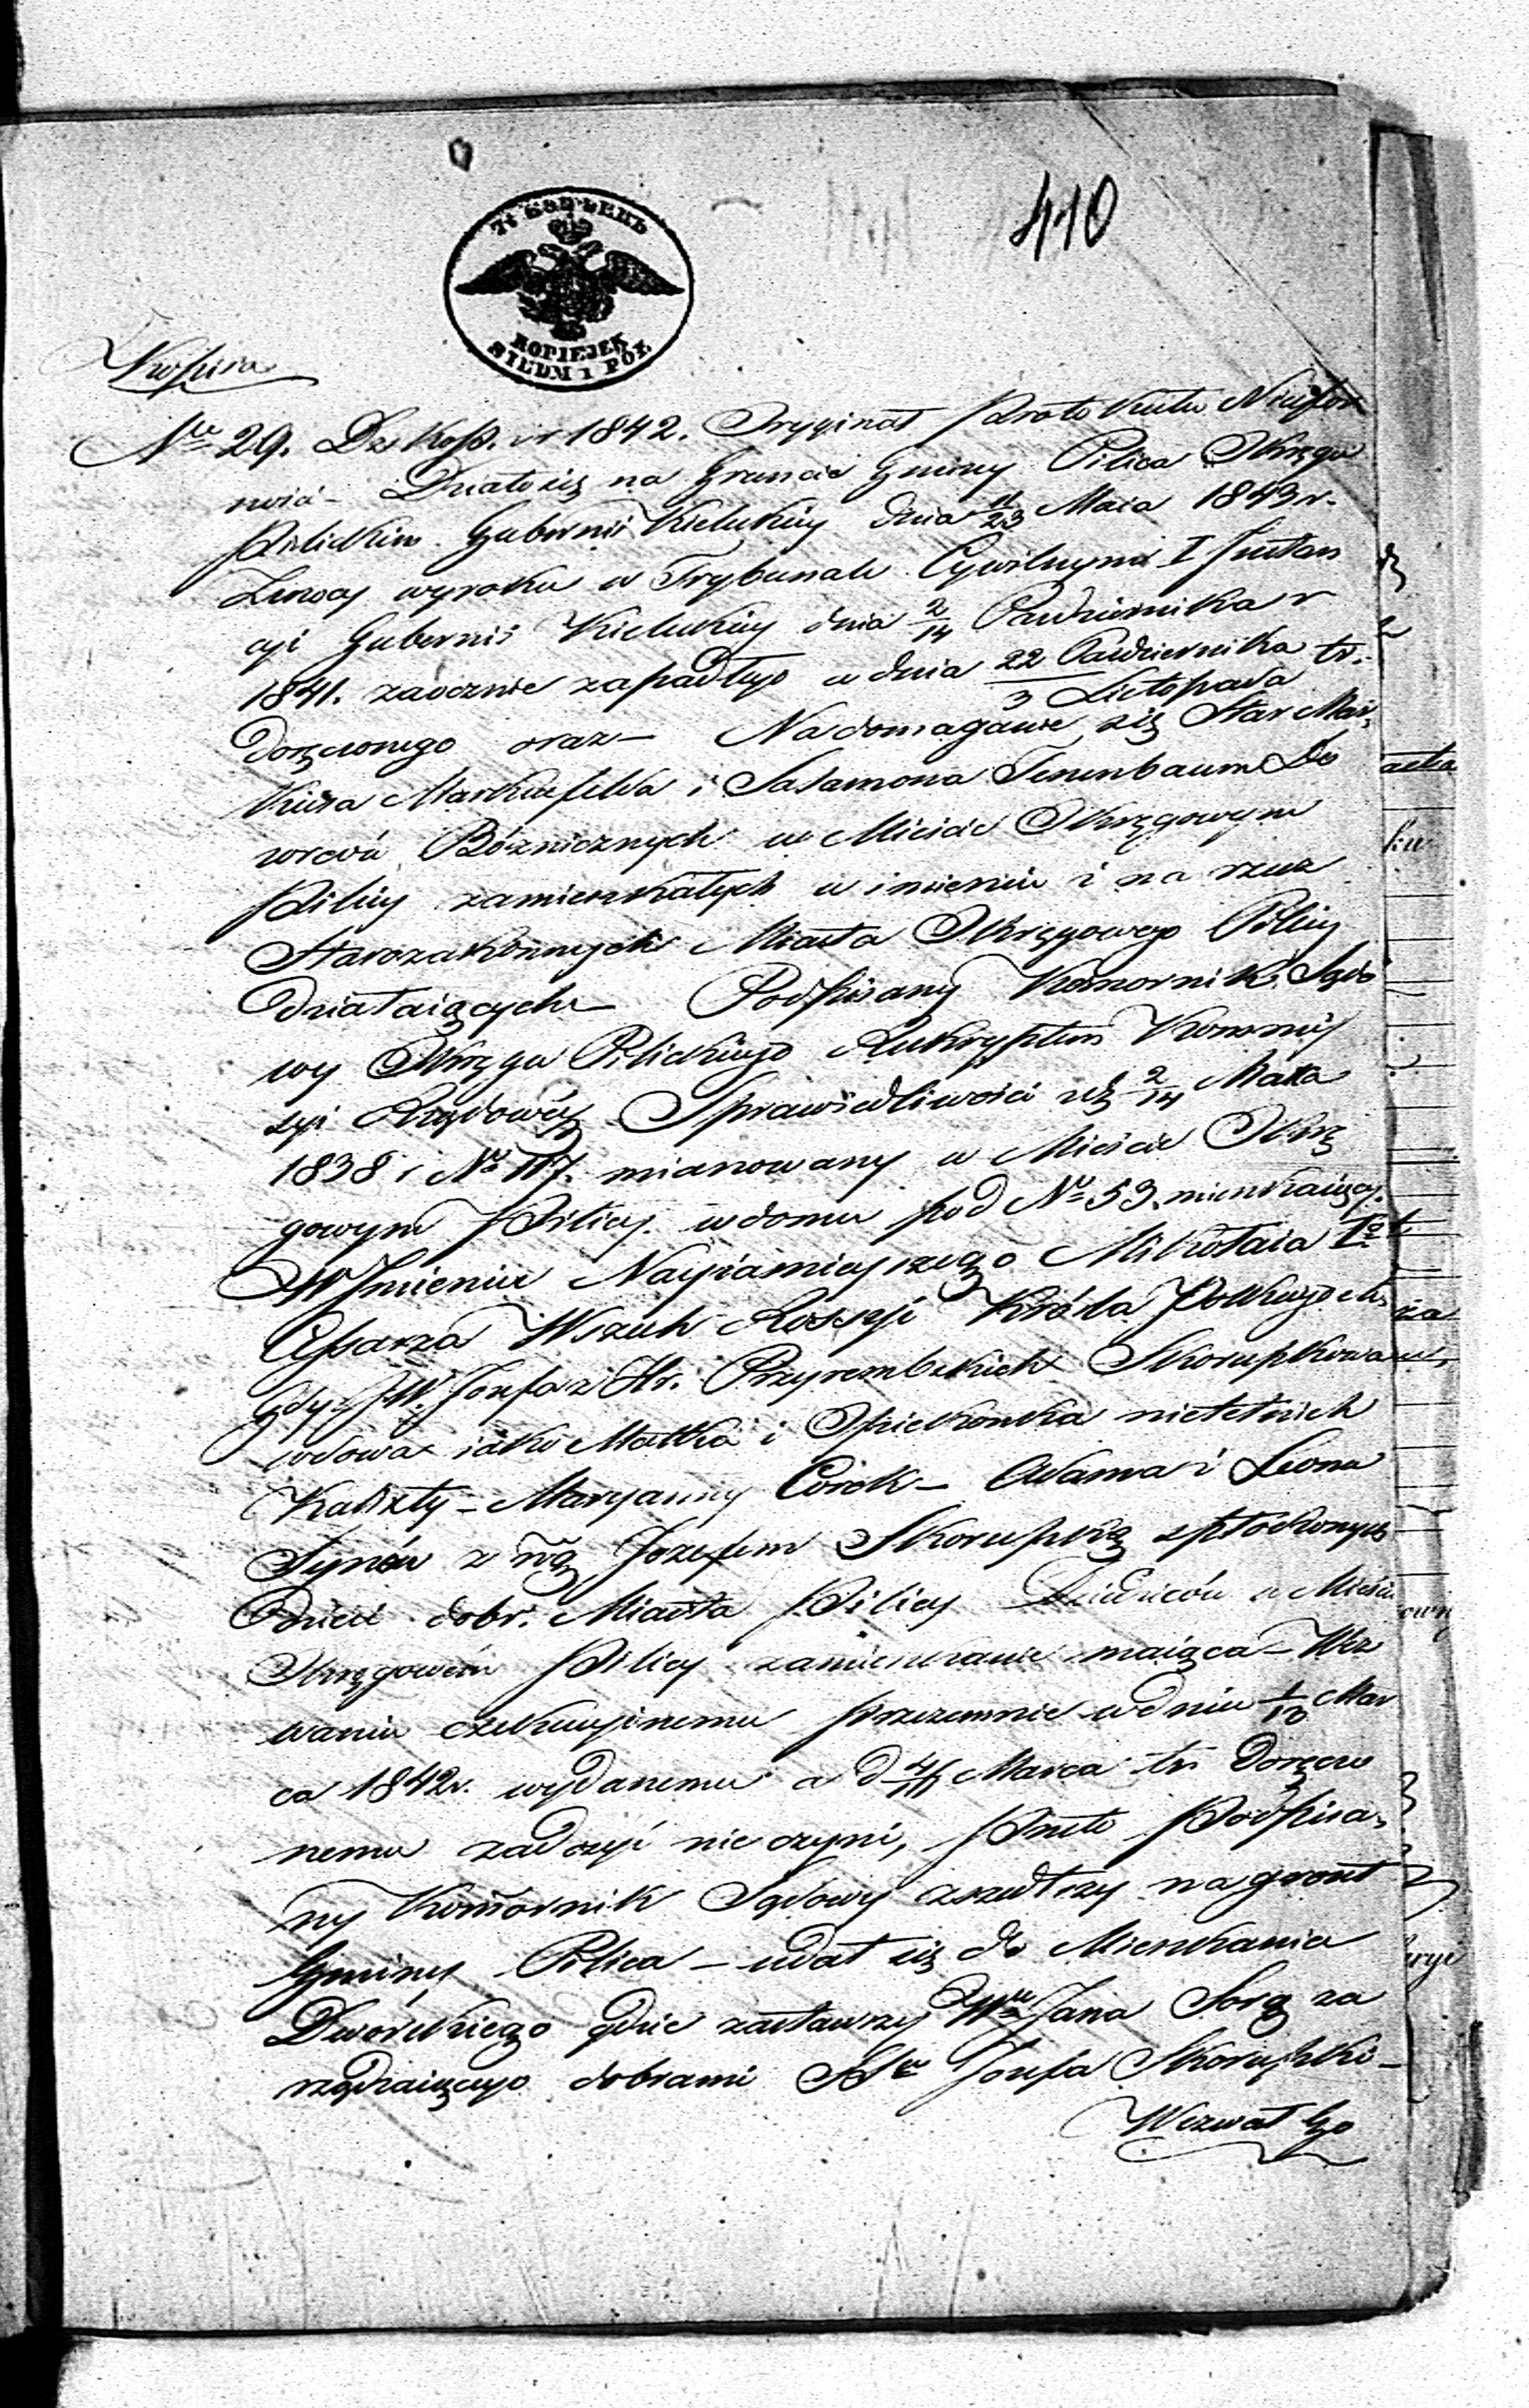 410
7½ КОПѢЕКЪ
KOPIEJEK
SIEDM i PÓŁ
Kopia
Nr 29. Dz. Koss. r 1842. Oryginał Protokułu Niufor
ności - Działo się na Gruncie Gminy Pilica Okręgu
Pilickim Gubernii Kieleckiey dnia 11/23 Maia 1843 r.
Z mocy wyroku w Trybunale Cywilnym I Instan
cyi Gubernii Kieleckiey dnia 2/14 Pazdziernika r
1841. zaocznie zapadłego a dnia 22 Pazdziernika / 3 Listopada tr.
doręczonego oraz - Na domaganie się Star Mar
kusa Markusfelda i Salamona Tenenbaum Do
zorców Bóżnicznych w Mieście Okręgowym
Pilicy zamieszkałych w imieniu i na rzecz
Starozakonnych Miasta Okręgowego Pilicy
działaiących - Podpisany Komornik Sądo
wy Okręgu Pilickiego Reskryptem Kommis
syi Rządowéy Sprawiedliwości z d 2/14 Maia
1838 r Nr 117. mianowany w Mieście Okrę
gowym Pilicy w domu pod Nr 53. mieszkaiący.
W Imieniu Nayiaśnieyszego Mikołaia Igo
Cesarza Wszech Rossyi Króla Polskiego etc
Gdy JW. Józefa z Hr. Przyrembskich Skorupkowa
wdowa iako Matka i Opiekunka nieletnich
Kalixty - Maryanny Córek - Adama i Leona
Synów z niegdy Józefem Skorupką spłodzonych
Dzieci dobr. Miasta Pilicy Dziedziców w Mieście
Okręgowem Pilicy zamieszkanie maiąca - Wez
waniu exekucyinemu przezemnie w dniu 1/13 Mar
ca 1842 r. wydanemu a d 4/16 Marca tr. doręczo
nemu zadosyć nie czyni, Przeto Podpisa-
ny Komornik Sądowy zszedłszy na grunt
Gminy Pilica - udał się do Mieszkania
Dworskiego gdzie zastawszy Wgo Jana Sorg za
rządzaiącego dobrami SSów Józefa Skorupki -
Wezwał Go